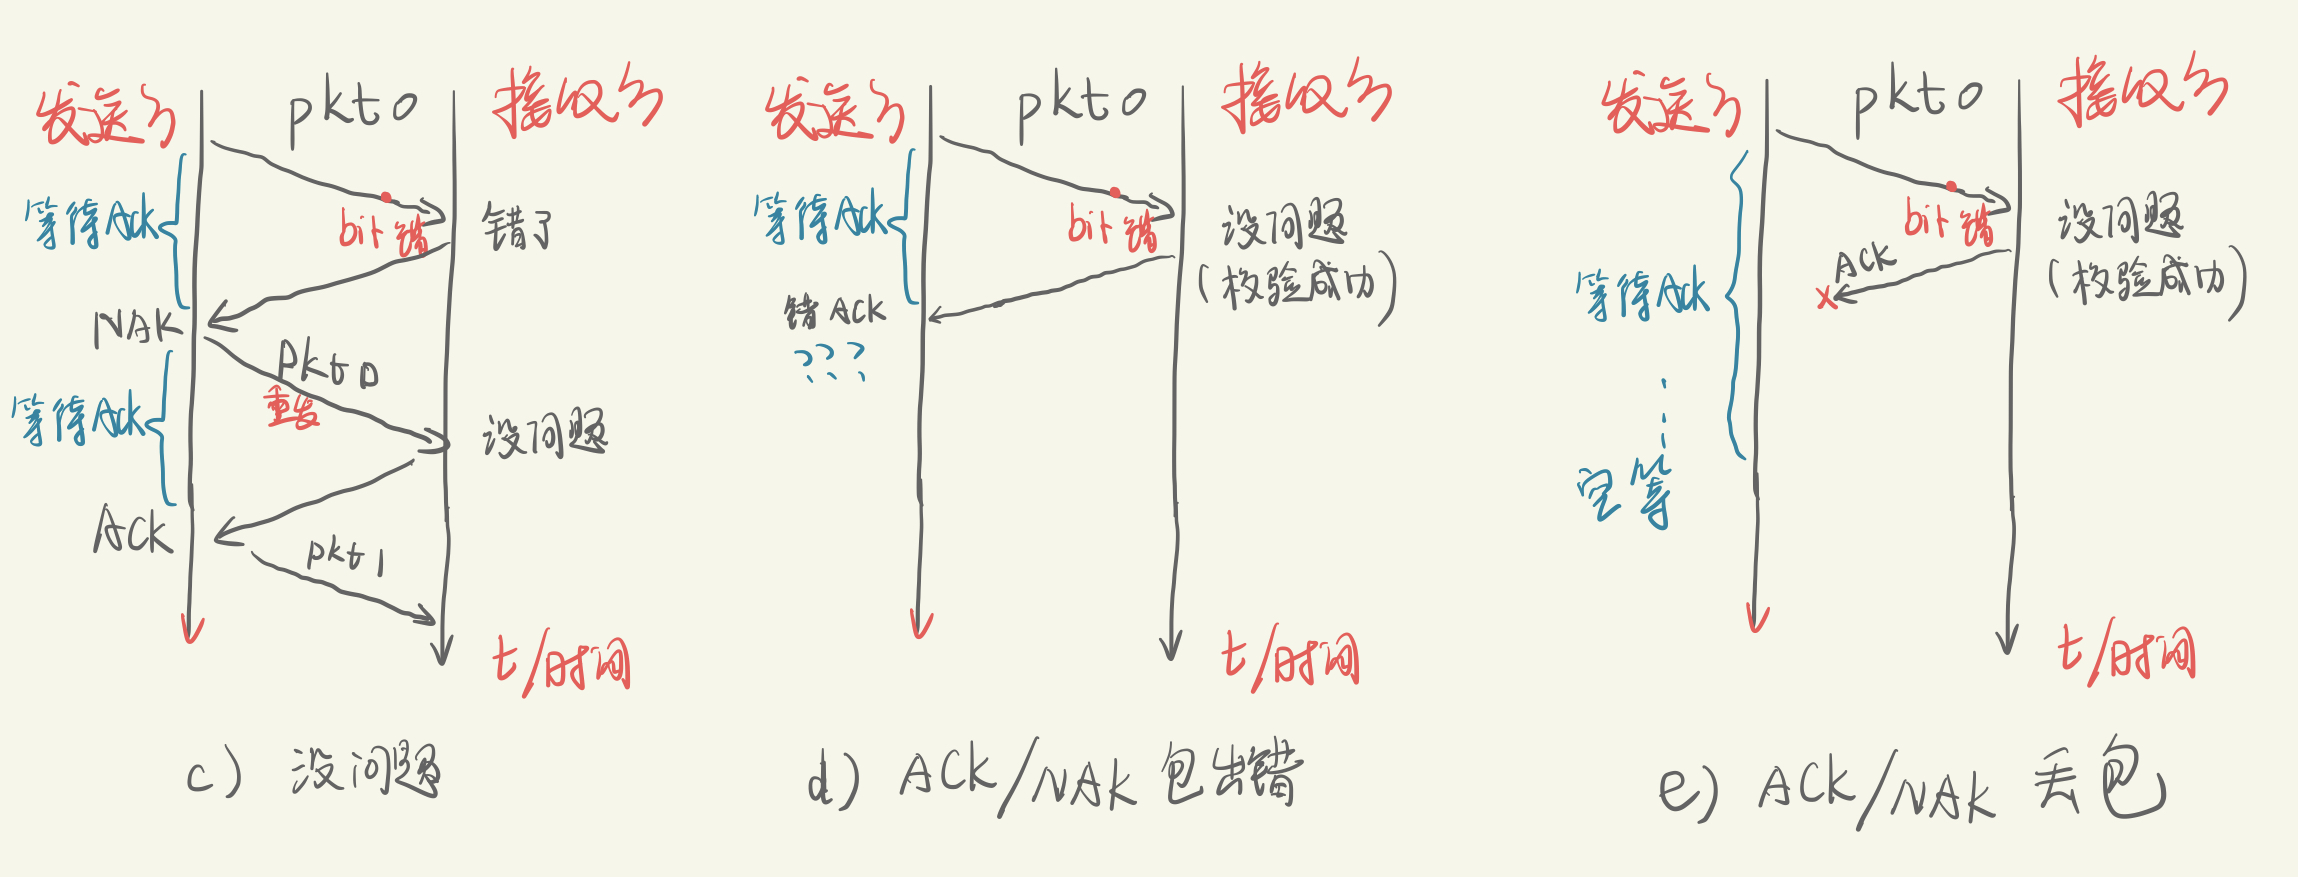 发送方
pkt 0
接收方
等待Ack
bit 错
错了
NAK
pkt 0
重发
等待Ack
没问题
ACK
pkt 1
t/时间
c) 没问题
发送方
pkt 0
接收方
等待Ack
bit 错
没问题
(校验成功)
错 ACK
???
t/时间
d) ACK/NAK 包出错
发送方
pkt 0
接收方
bit 错
没问题
(校验成功)
ACK
x
等待Ack
空等
t/时间
e) ACK/NAK 丢包